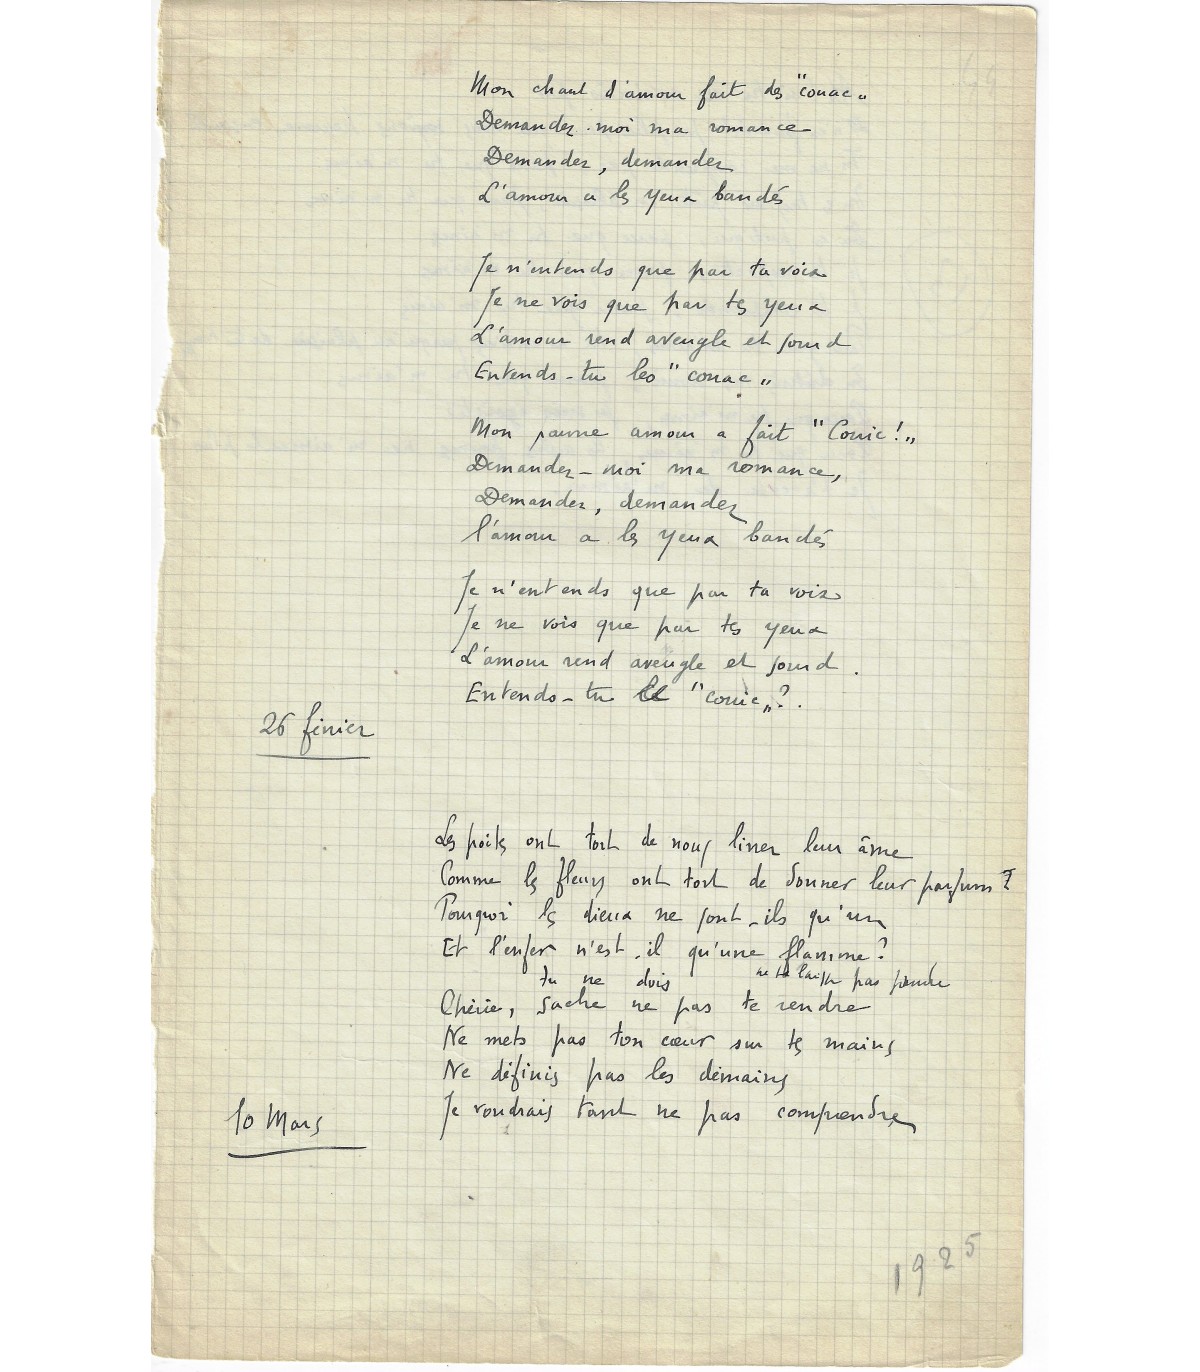 Mon chant d'amour fait des "couac"
Demandez-moi ma romance
Demandez, demandez
L'amour a les yeux bandés
Je n'entends que par ta voix
Je ne vois que par tes yeux
L'amour rend aveugle et sourd
Entends-tu les "couac"
Mon pauvre amour a fait "Couic!"
Demandez-moi ma romance,
Demandez, demandez
l'amour a les yeux bandés
Je n'entends que par ta voix
Je ne vois que par tes yeux
L'amour rend aveugle et sourd.
Entends-tu le "couic"?.
26 février
Les poètes ont tort de nous livrer leur âme
Comme les fleurs ont tort de donner leur parfum?
Pourquoi les dieux ne sont-ils qu'un
Et l'enfer n'est-il qu'une flamme?
tu ne dois ne te laisse pas prendre
Chérie, sache ne pas te rendre
Ne mets pas ton cœur sur tes mains
Ne définis pas les demains
Je voudrais tant ne pas comprendre
10 Mars
1925